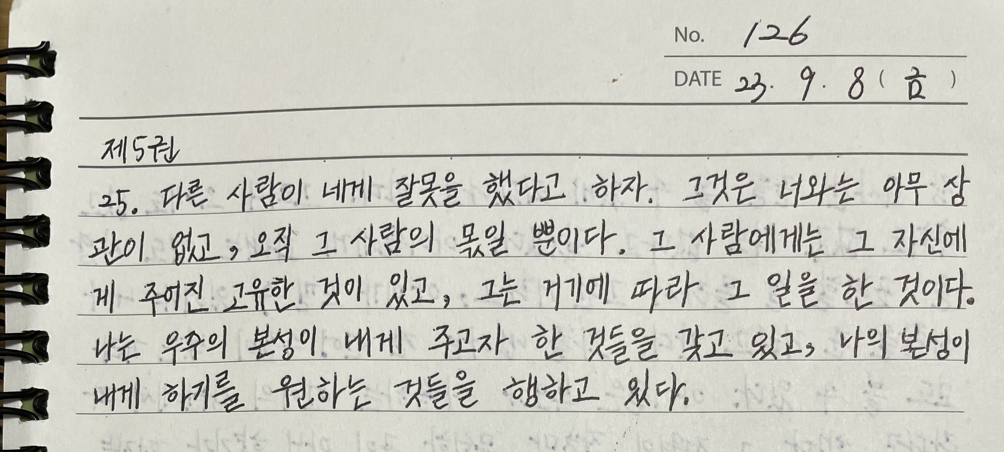 No. 126
DATE 23. 9. 8 (금)
제5권
25. 다른 사람이 네게 잘못을 했다고 하자. 그것은 너와는 아무 상
관이 없고, 오직 그 사람의 몫일 뿐이다. 그 사람에게는 그 자신에
게 주어진 고유한 것이 있고, 그는 거기에 따라 그 일을 한 것이다.
나는 우주의 본성이 내게 주고자 한 것들을 갖고 있고, 나의 본성이
내게 하기를 원하는 것들을 행하고 있다.